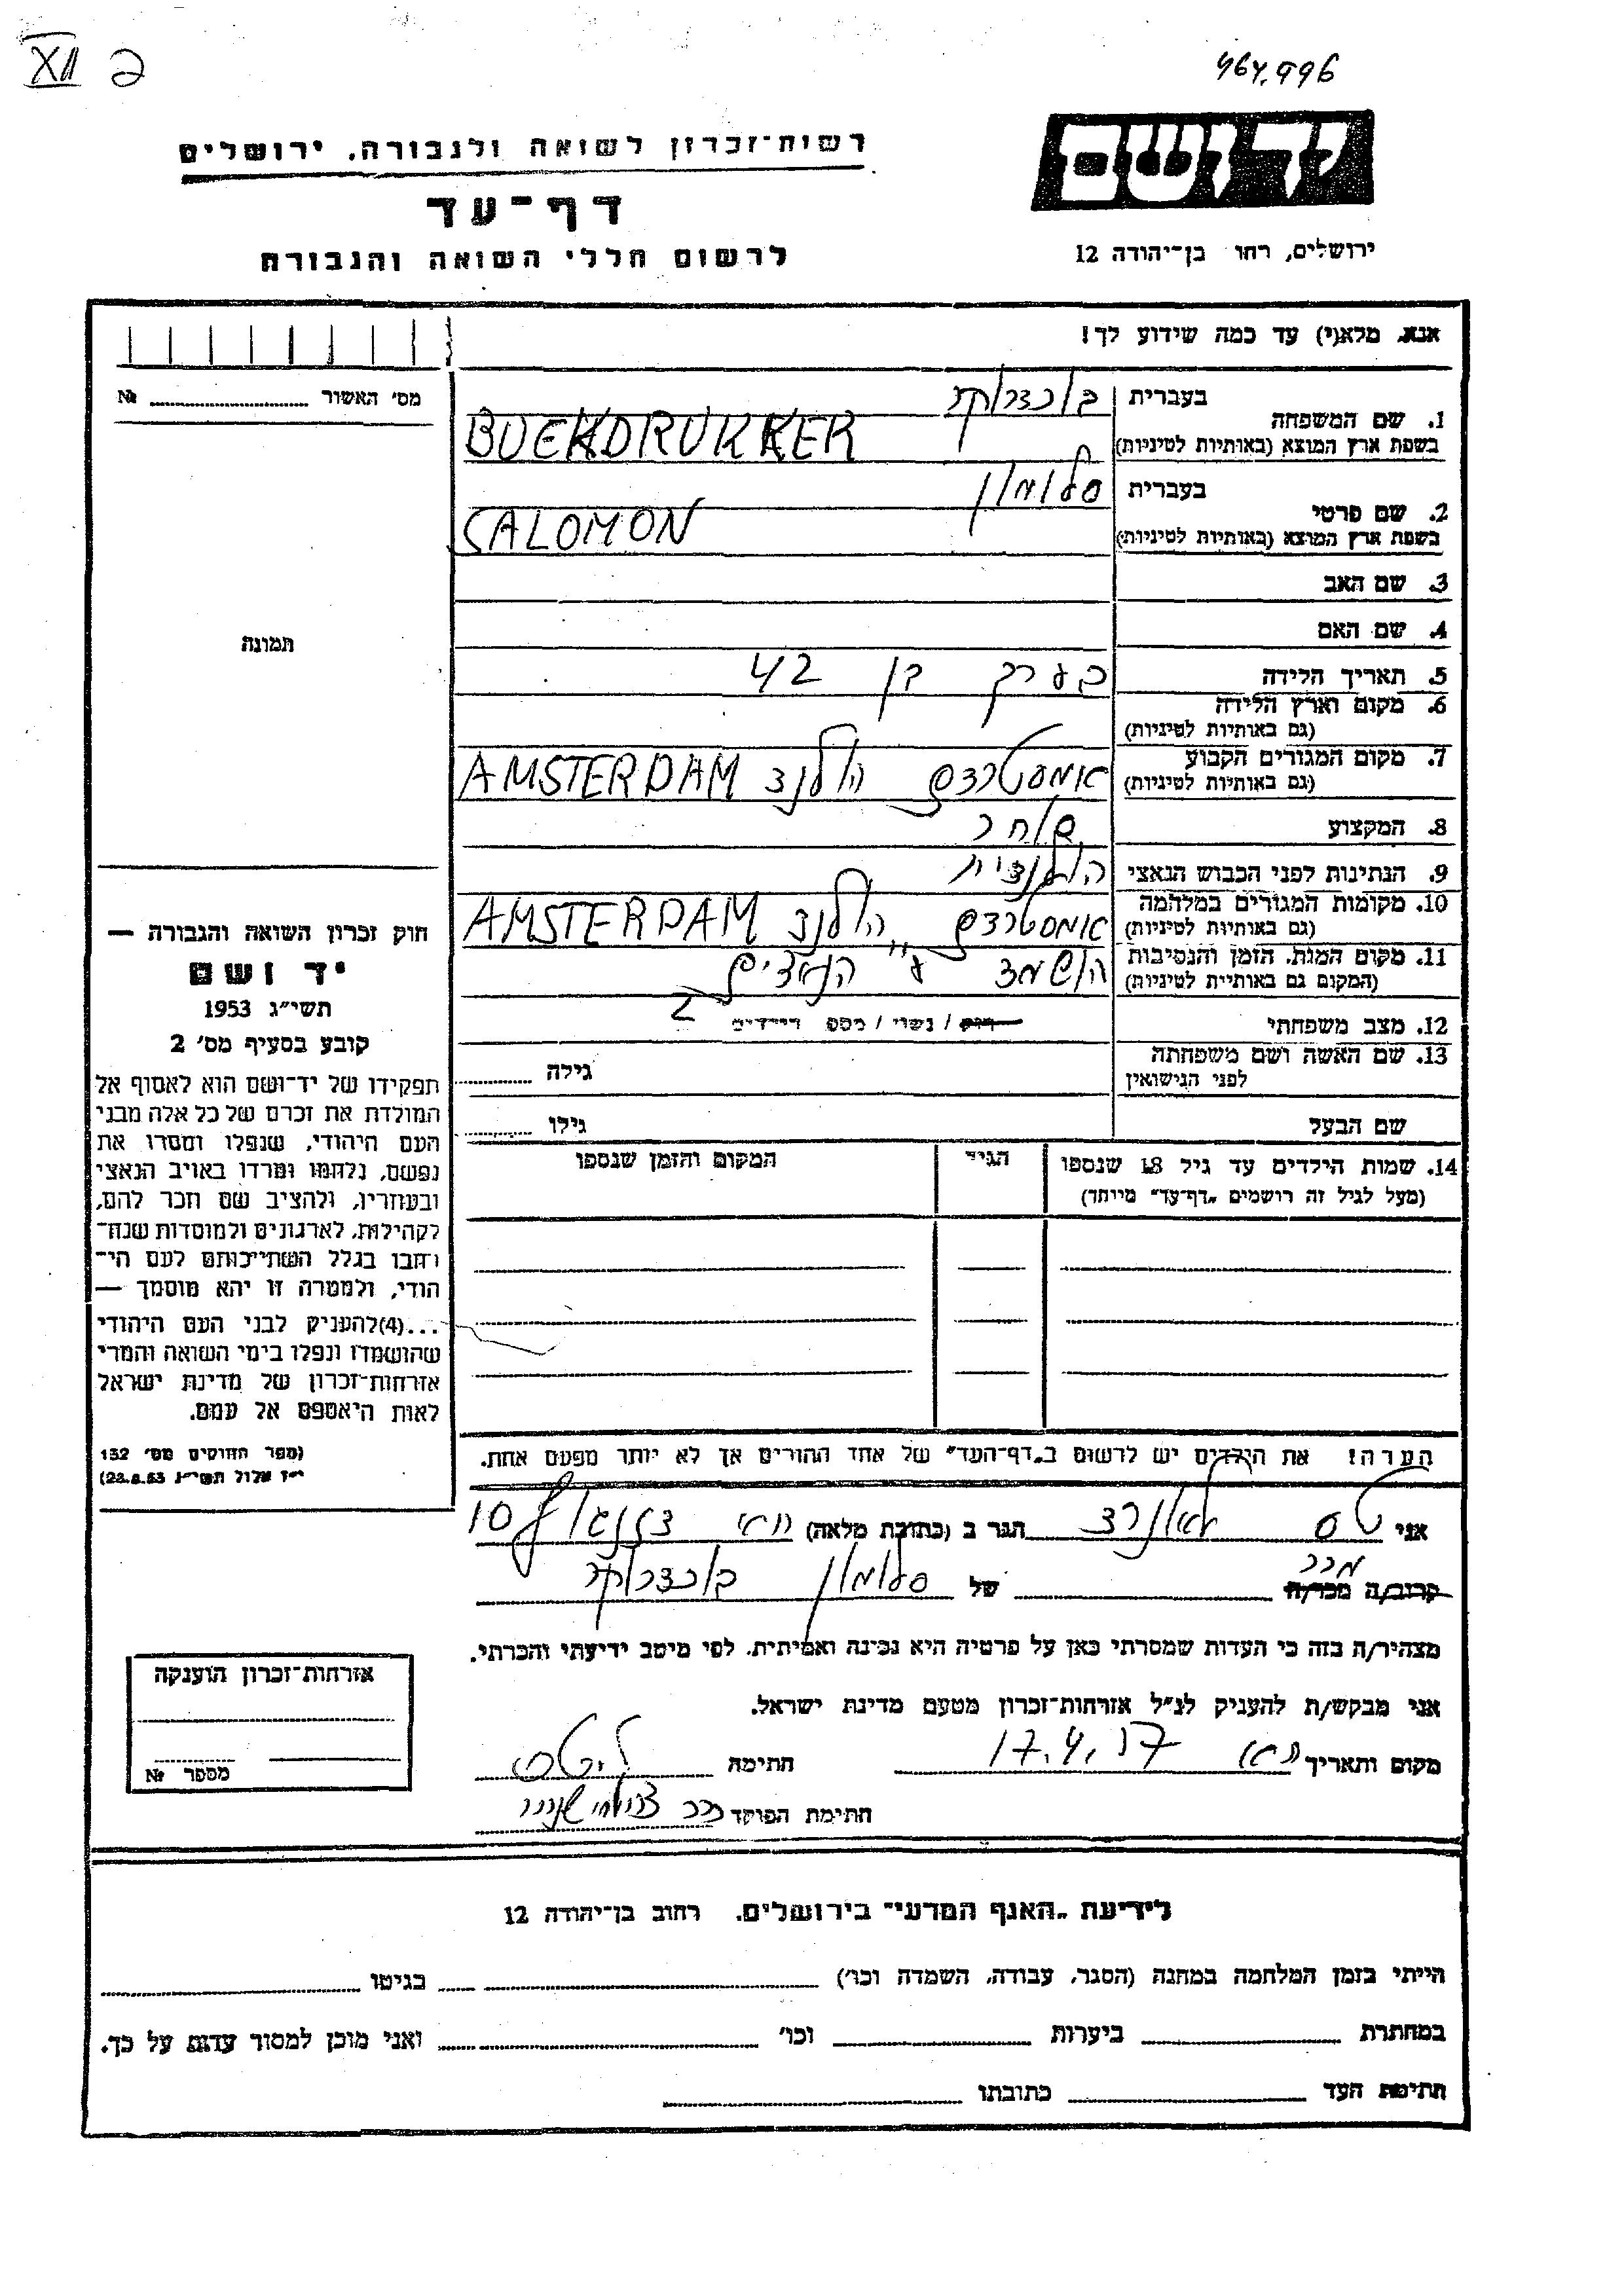 XII 2
464.996
רשות־זכרון לשואה ולגבורה, ירושלים
יד ושם
דף־עד
לרשום חללי השואה והגבורה
ירושלים, רחו בן־יהודה 12
אנא, מלא(י) עד כמה שידוע לך!
מס׳ האשור №
תמונה
1. שם המשפחה
בעברית בוכדרוקר
בשפת ארץ המוצא (באותיות לטיניות) BUEKDRUKKER
2. שם פרטי
בעברית סלומון
בשפת ארץ המוצא (באותיות לטיניות) SALOMON
3. שם האב
4. שם האם
5. תאריך הלידה בערך בן 42
6. מקום וארץ הלידה
(גם באותיות לטיניות)
7. מקום המגורים הקבוע אמסטרדם הולנד AMSTERDAM
(גם באותיות לטיניות)
8. המקצוע סוחר
9. הנתינות לפני הכבוש הנאצי הולנדית
10. מקומות המגורים במלחמה אמסטרדם הולנד AMSTERDAM
(גם באותיות לטיניות)
11. מקום המות, הזמן והנסיבות הושמד ע״י הנאצים
(המקום גם באותיית לטיניות)
12. מצב משפחתי רווק / נשוי / מספ הילדים 2
13. שם האשה ושם משפחתה גילה
לפני הנישואין
שם הבעל גילו
14. שמות הילדים עד גיל 18 שנספו הגיל המקום והזמן שנספו
(מעל לגיל זה רושמים „דף־עד״ מיוחד)
חוק זכרון השואה והגבורה —
יד ושם
תשי״ג 1953
קובע בסעיף מס׳ 2
תפקידו של יד־ושם הוא לאסוף אל
המולדת את זכרם של כל אלה מבני
העם היהודי, שנפלו ומסרו את
נפשם, נלחמו ומרדו באויב הנאצי
ובעוזריו, ולהציב שם וזכר להם,
לקהילות, לארגונים ולמוסדות שנח־
רחבו בגלל השתייכותם לעם הי־
הודי, ולמטרה זו יהא מוסמך —
...(4)להעניק לבני העם היהודי
שהושמדו ונפלו בימי השואה והמרי
אזרחות־זכרון של מדינת ישראל
לאות היאספם אל עמם.
(ספר החוקים מס׳ 132
י״ז אלול תשי״ג 28.8.53)
הערה! את הילדים יש לרשום ב„דף־העד״ של אחד ההורים אך לא יותר מפעם אחת.
אני טס לאונרד הגר ב (כתובת מלאה) ת״א 10
מכר
קרוב/ה מכר/ה של סלומון בוכדרוקר
מצהיר/ה בזה כי העדות שמסרתי כאן על פרטיה היא נכונה ואמיתית, לפי מיטב ידיעתי והכרתי.
אני מבקש/ת להעניק לנ״ל אזרחות־זכרון מטעם מדינת ישראל.
מקום ותאריך ת״א 17.4.57 חתימה
חתימת הפוקד
אזרחות־זכרון הוענקה
מספר №
לידיעת „האגף המדעי״ בירושלים, רחוב בן־יהודה 12
הייתי בזמן המלחמה במחנה (הסגר, עבודה, השמדה וכו׳) בגיטו
במחתרת ביערות וכו׳ ואני מוכן למסור עדות על כך.
חתימת העד כתובתו